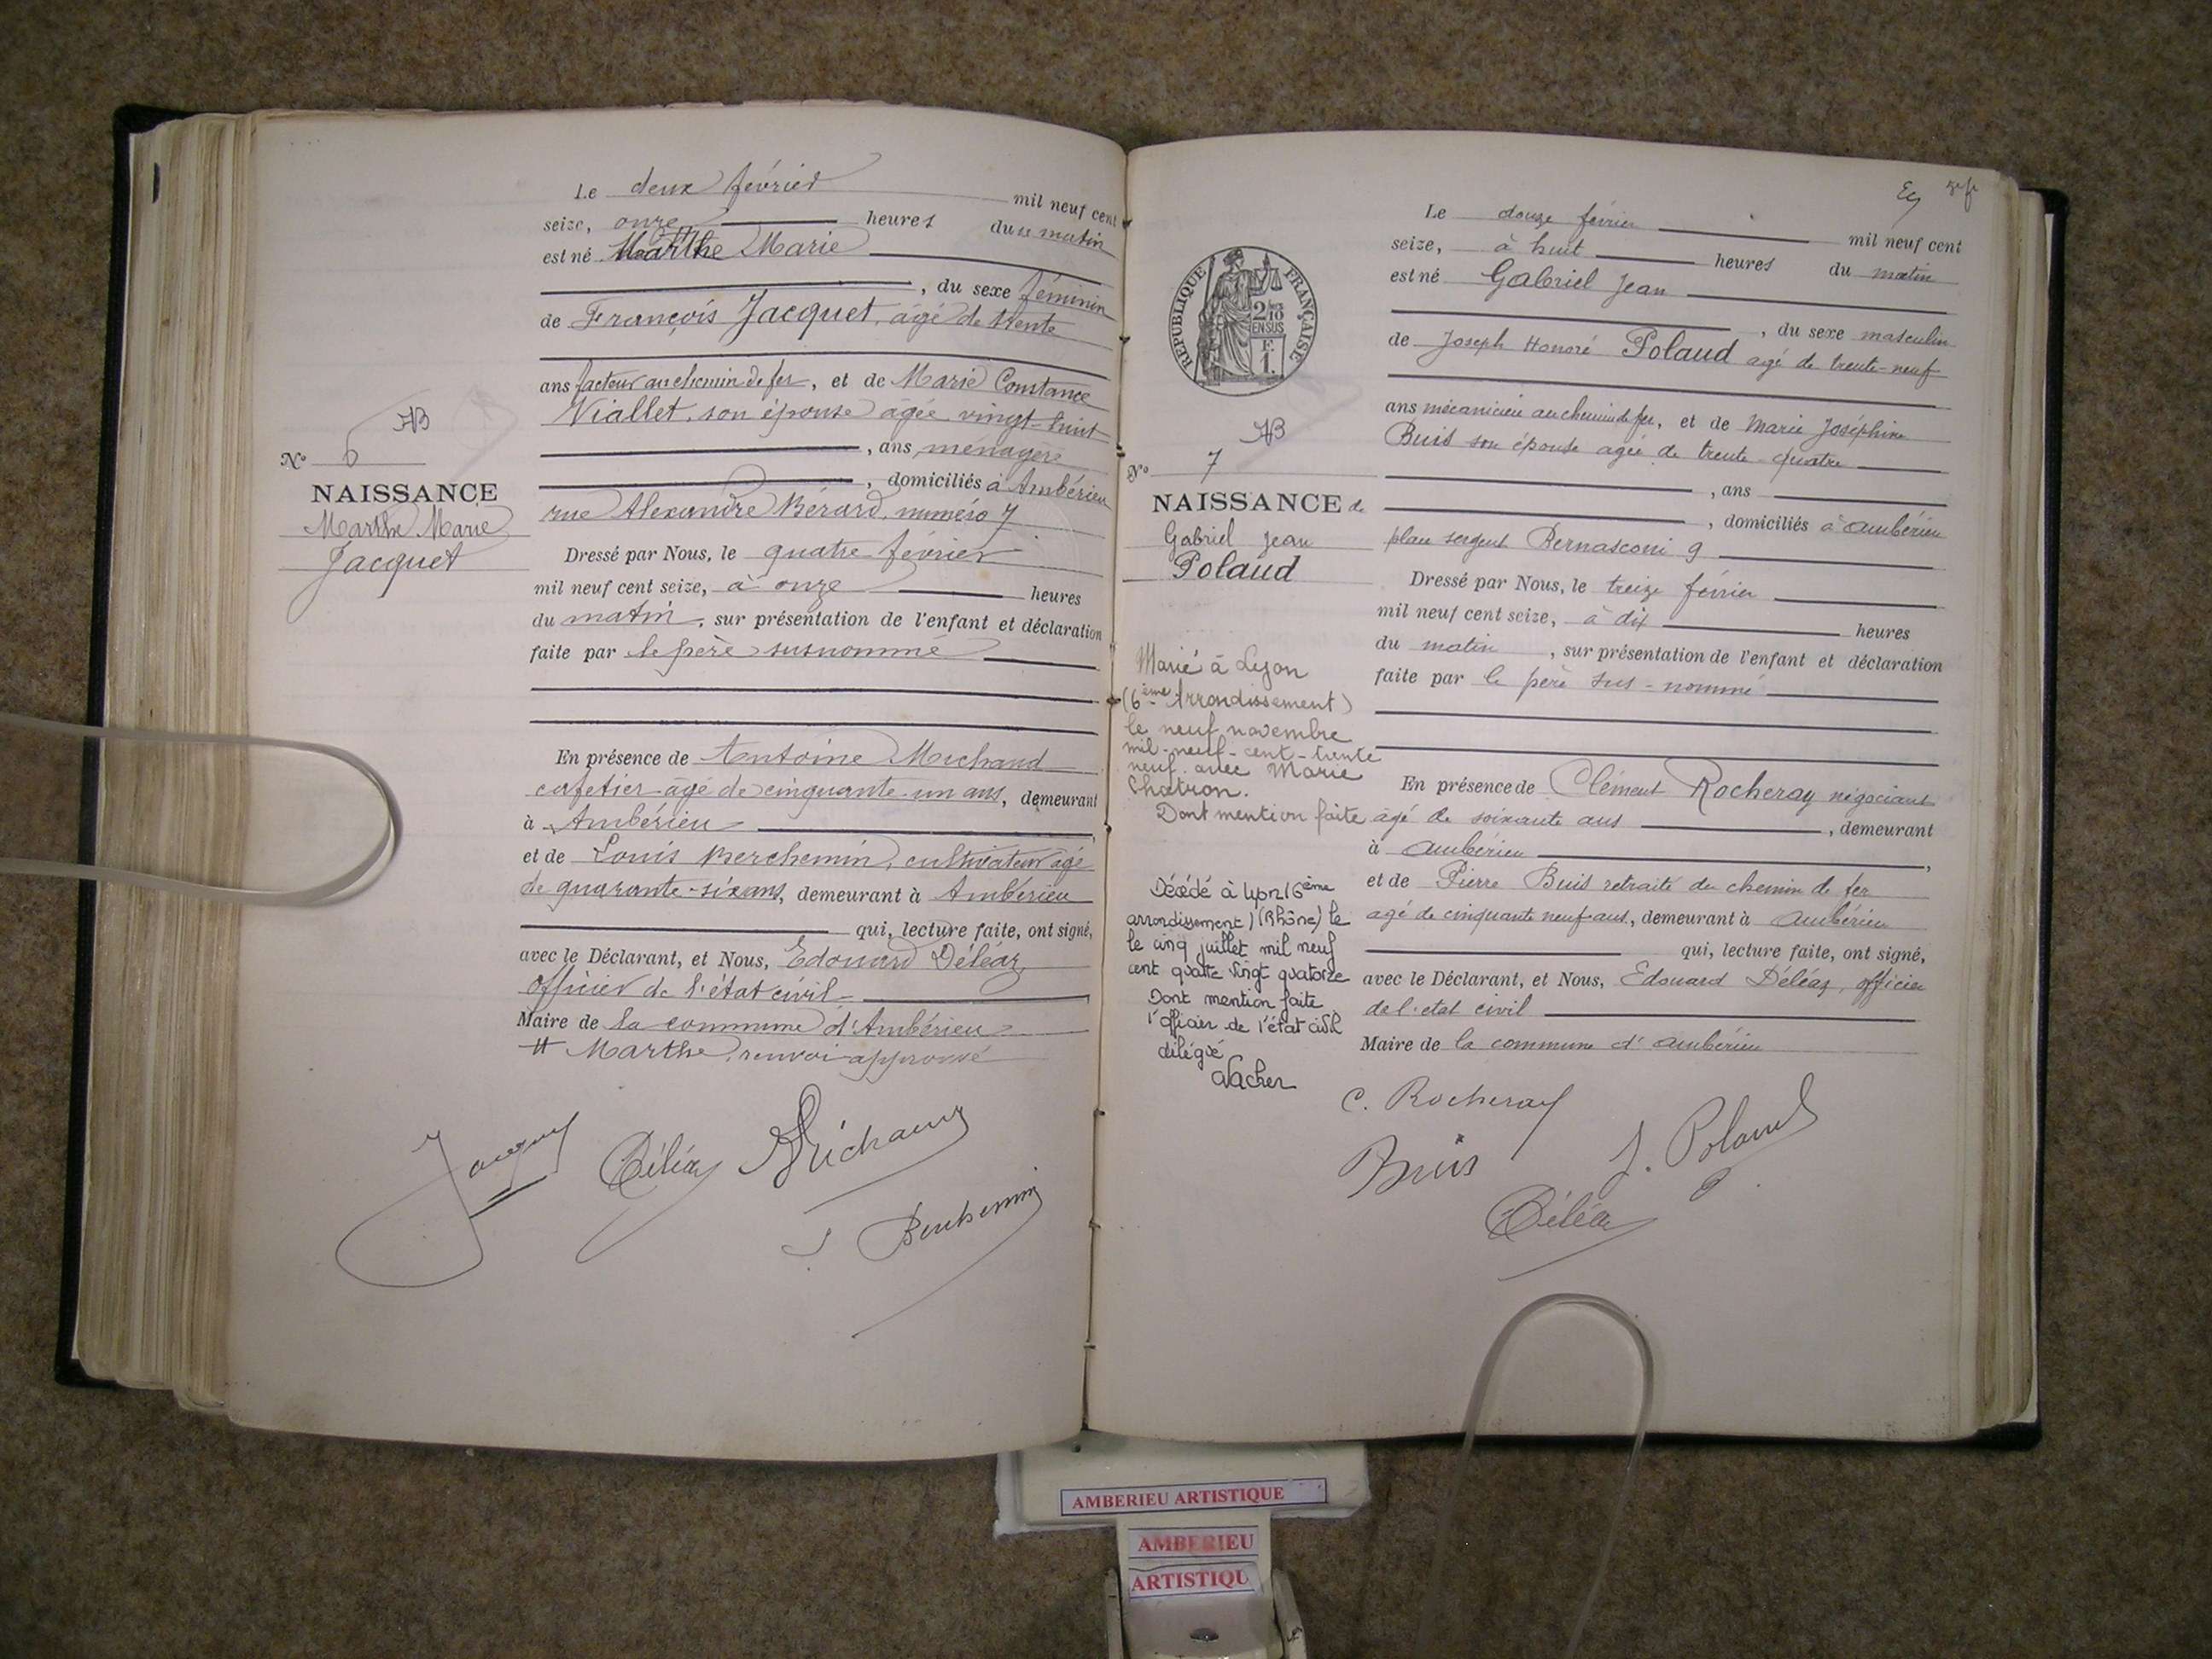 Le deux février mil neuf cent
seize, onze heures du matin
est né Marthe Marie
, du sexe féminin
de François Jacquet, âgé de trente
ans facteur au chemin de fer, et de Marie Constance
Viallet, son épouse âgée vingt-huit
, ans, ménagère
, domiciliés à Ambérieu
rue Alexandre Bérard, numéro 7
Dressé par Nous, le quatre février
mil neuf cent seize, à onze heures
du matin, sur présentation de l'enfant et déclaration
faite par le père susnommé
En présence de Antoine Michaud
cafetier âgé de cinquante-un ans, demeurant
à Ambérieu
et de Louis Berchemin, cultivateur âgé
de quarante-six ans, demeurant à Ambérieu
qui, lecture faite, ont signé,
avec le Déclarant, et Nous, Edouard Déléaz
officier de l'état civil
Maire de la commune d'Ambérieu
# Marthe, renvoi approuvé
Jacquet Déléaz Michaud
Berchemin
AB
N° 6
NAISSANCE
Marthe Marie
Jacquet
Le douze février mil neuf cent
seize, à huit heures du matin
est né Gabriel Jean
, du sexe masculin
de Joseph Honoré Polaud agé de trente-neuf
ans mécanicien au chemin de fer, et de Marie Joséphine
Buis son épouse agée de trente-quatre
, ans
, domiciliés à Ambérieu
place sergent Bernasconi 9
Dressé par Nous, le treize février
mil neuf cent seize, à dix heures
du matin, sur présentation de l'enfant et déclaration
faite par le père sus-nommé
En présence de Clément Rocheray négociant
âgé de soixante ans, demeurant
à Ambérieu,
et de Pierre Buis retraité du chemin de fer
agé de cinquante neuf ans, demeurant à Ambérieu
qui, lecture faite, ont signé,
avec le Déclarant, et Nous, Edouard Déléaz, officier
de l'etat civil
Maire de la commune d'Ambérieu
C. Rocheray
Buis J. Polaud
Déléaz
RÉPUBLIQUE FRANÇAISE
2/10
EN SUS
F.
1.
AB
N° 7
NAISSANCE de
Gabriel Jean
Polaud
Marié à Lyon
(6ème Arrondissement)
le neuf novembre
mil-neuf-cent-trente
neuf avec Marie
Chatron.
Dont mention faite
Décédé à Lyon (6ème
arrondissement) (Rhône) le
le cinq juillet mil neuf
cent quatre vingt quatorze
Dont mention faite
l'officier de l'état civil
délégué
Vacher
AMBERIEU ARTISTIQUE
AMBERIEU
ARTISTIQU